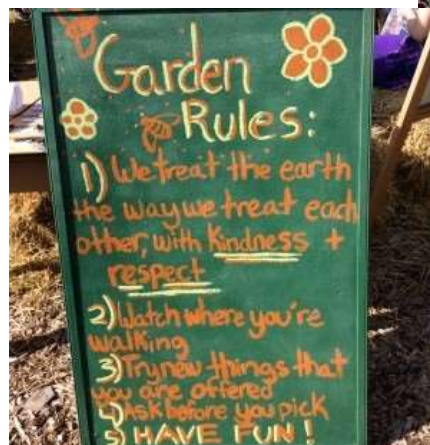 Garden
Rules:
1) We treat the earth
the way we treat each
other, with Kindness +
respect
2) Watch where you're
walking
3) Try new things that
you are offered
5) Ask before you pick
5) HAVE FUN!